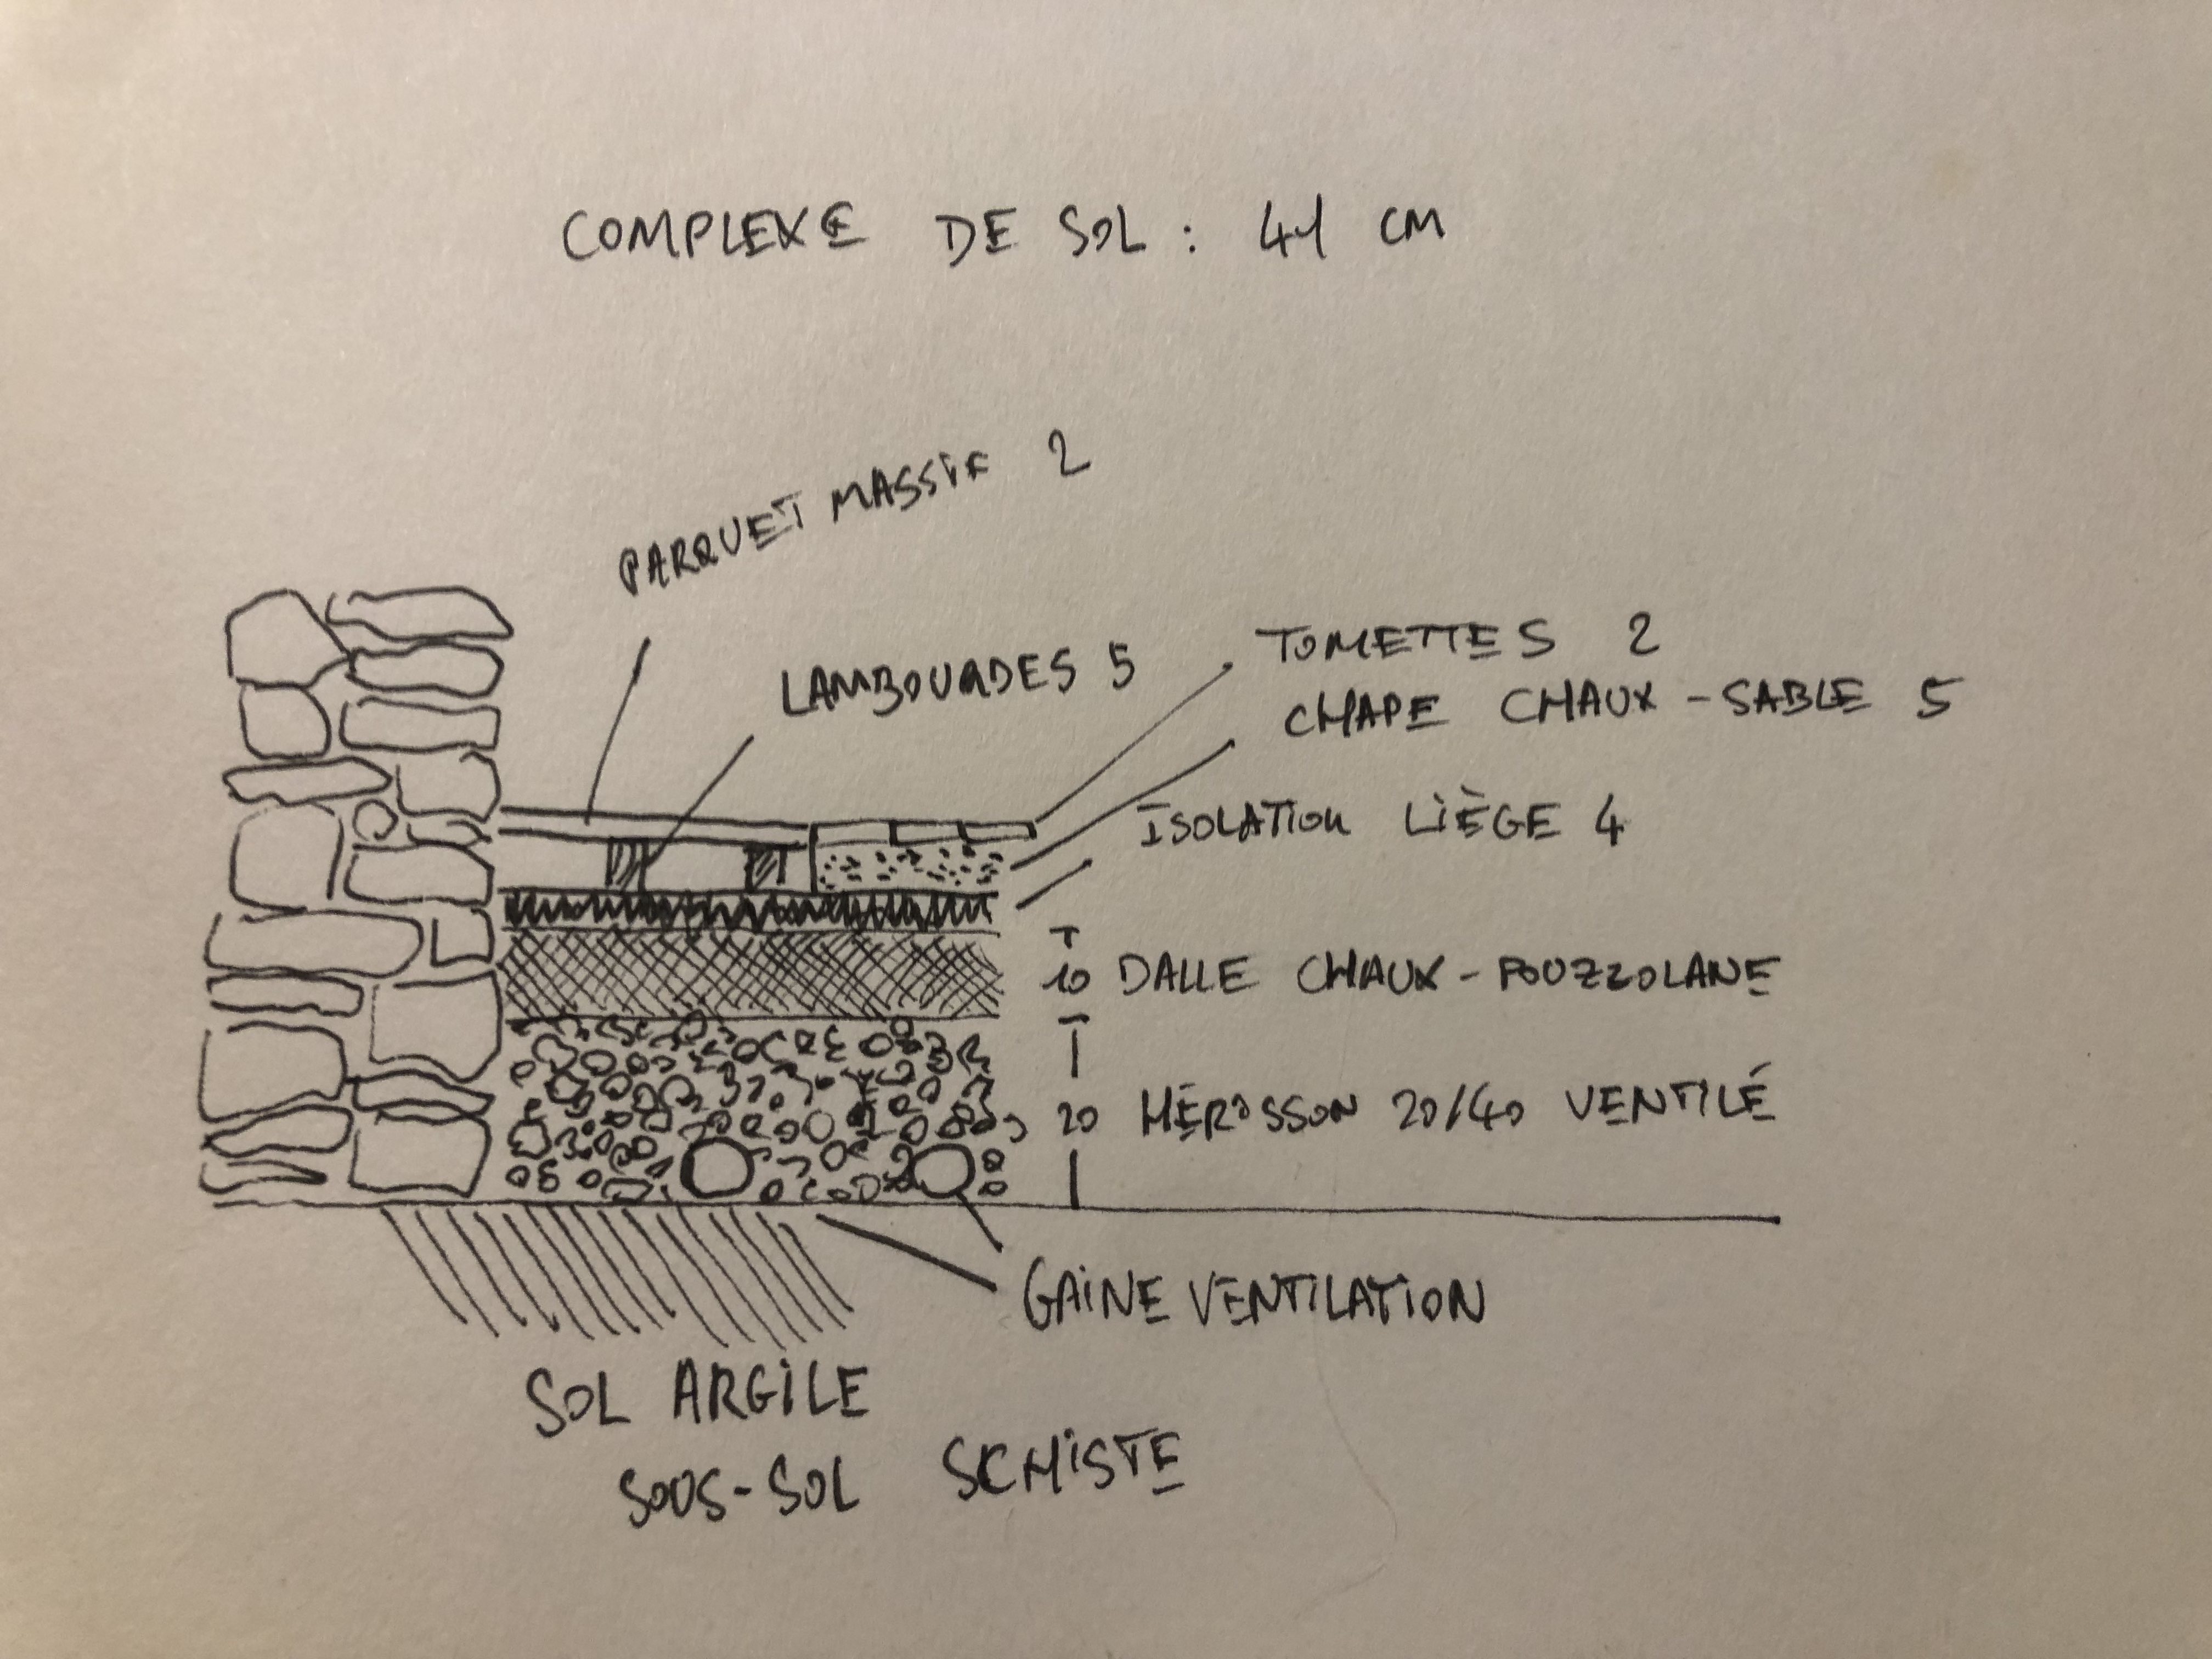 COMPLEXE DE SOL : 41 CM
PARQUET MASSIF 2
LAMBOURDES 5
TOMETTES 2
CHAPE CHAUX - SABLE 5
ISOLATION LIÈGE 4
10 DALLE CHAUX - POUZZOLANE
20 HÉRISSON 20/40 VENTILÉ
GAINE VENTILATION
SOL ARGILE
SOUS-SOL SCHISTE